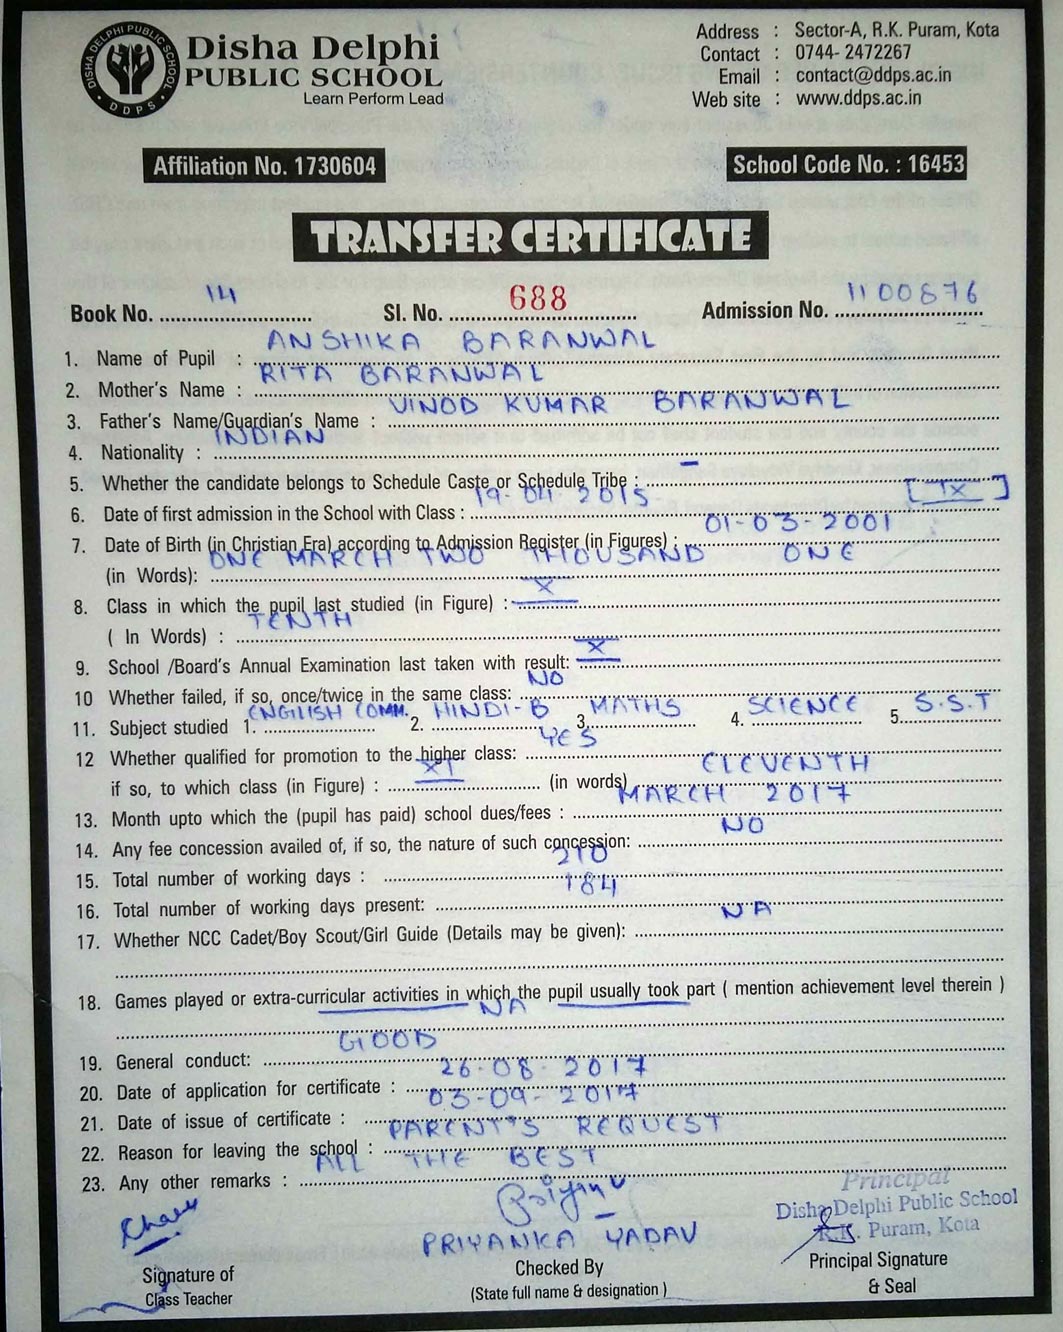 DISHA DELPHI PUBLIC SCHOOL
DDPS
Disha Delphi
PUBLIC SCHOOL
Learn Perform Lead
Address : Sector-A, R.K. Puram, Kota
Contact : 0744- 2472267
Email : contact@ddps.ac.in
Web site : www.ddps.ac.in
Affiliation No. 1730604
School Code No. : 16453
TRANSFER CERTIFICATE
Book No. 14 Sl. No. 688 Admission No. 1100876
1. Name of Pupil : ANSHIKA BARANWAL
2. Mother's Name : RITA BARANWAL
3. Father's Name/Guardian's Name : VINOD KUMAR BARANWAL
4. Nationality : INDIAN
5. Whether the candidate belongs to Schedule Caste or Schedule Tribe : -
6. Date of first admission in the School with Class : 19-04-2015 [IX]
7. Date of Birth (in Christian Era) according to Admission Register (in Figures) : 01-03-2001
(in Words): ONE MARCH TWO THOUSAND ONE
8. Class in which the pupil last studied (in Figure) : X
( In Words) : TENTH
9. School /Board's Annual Examination last taken with result: X
10 Whether failed, if so, once/twice in the same class: NO
11. Subject studied 1. ENGLISH COMM. 2. HINDI-B 3. MATHS 4. SCIENCE 5. S.S.T
12 Whether qualified for promotion to the higher class: YES
if so, to which class (in Figure) : XI (in words) ELEVENTH
13. Month upto which the (pupil has paid) school dues/fees : MARCH 2017
14. Any fee concession availed of, if so, the nature of such concession: NO
15. Total number of working days : 210
16. Total number of working days present: 184
17. Whether NCC Cadet/Boy Scout/Girl Guide (Details may be given): NA
18. Games played or extra-curricular activities in which the pupil usually took part ( mention achievement level therein )
NA
19. General conduct: GOOD
20. Date of application for certificate : 26-08-2017
21. Date of issue of certificate : 03-09-2017
22. Reason for leaving the school : PARENT'S REQUEST
23. Any other remarks : ALL THE BEST
Principal
Disha Delphi Public School
R.K. Puram, Kota
PRIYANKA YADAV
Signature of
Class Teacher
Checked By
(State full name & designation )
Principal Signature
& Seal